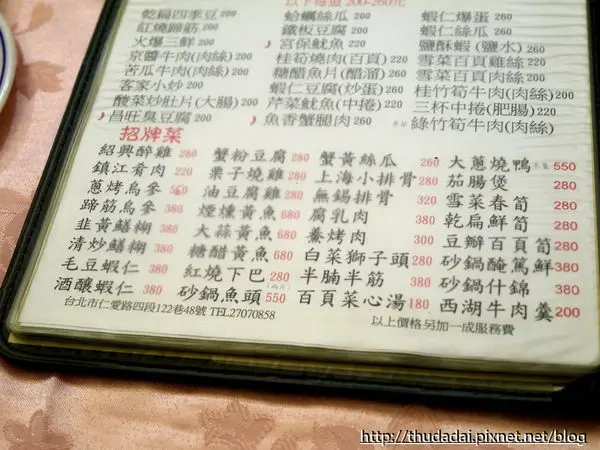 以下每道 200-260元
乾扁四季豆 200 蛤蠣絲瓜 200 蝦仁爆蛋 260
紅燒蹄筋 200 鐵板豆腐 200 蝦仁絲瓜 260
火爆三鮮 200 宮保魷魚 220 鹽酥蝦(鹽水) 260
京醬牛肉(肉絲) 200 桂筍燒肉(百頁) 220 雪菜百頁雞絲 220
苦瓜牛肉(肉絲) 200 糖醋魚片(醋溜) 260 雪菜百頁肉絲 200
客家小炒 200 蝦仁豆腐(炒蛋) 260 桂竹筍牛肉(肉絲)
酸菜炒肚片(大腸) 200 芹菜魷魚(中捲) 220 三杯中捲(肥腸) 220
昌旺臭豆腐 200 魚香蟹腿肉 260 綠竹筍牛肉(肉絲)
招牌菜
紹興醉雞 280 蟹粉豆腐 280 蟹黃絲瓜 260 大蔥燒鴨 550
鎮江肴肉 220 栗子燒雞 280 上海小排骨 280 茄腸煲 280
蔥烤烏參 油豆腐雞 280 無錫排骨 320 雪菜春筍 280
蹄筋烏參 380 煙燻黃魚 680 腐乳肉 380 乾扁鮮筍 280
韭黃鱔糊 380 大蒜黃魚 680 鯗烤肉 300 豆瓣百頁筍 280
清炒鱔糊 380 糖醋黃魚 680 白菜獅子頭 280 砂鍋醃篤鮮 380
毛豆蝦仁 380 紅燒下巴 280 半腩半筋 380 砂鍋什錦 380
酒釀蝦仁 380 砂鍋魚頭 550 百頁菜心湯 180 西湖牛肉羹 200
台北市仁愛路四段122巷48號 TEL27070858 以上價格另加一成服務費
http://thudadai.pixnet.net/blog